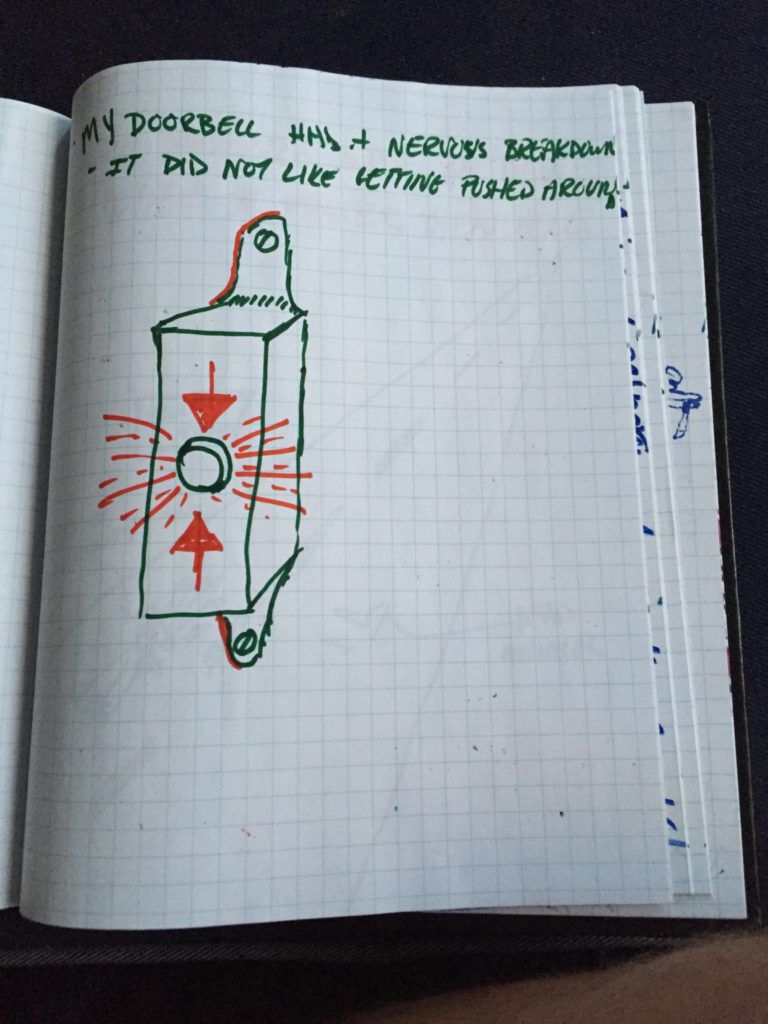 MY DOORBELL HAD A NERVOUS BREAKDOWN
- IT DID NOT LIKE GETTING PUSHED AROUND